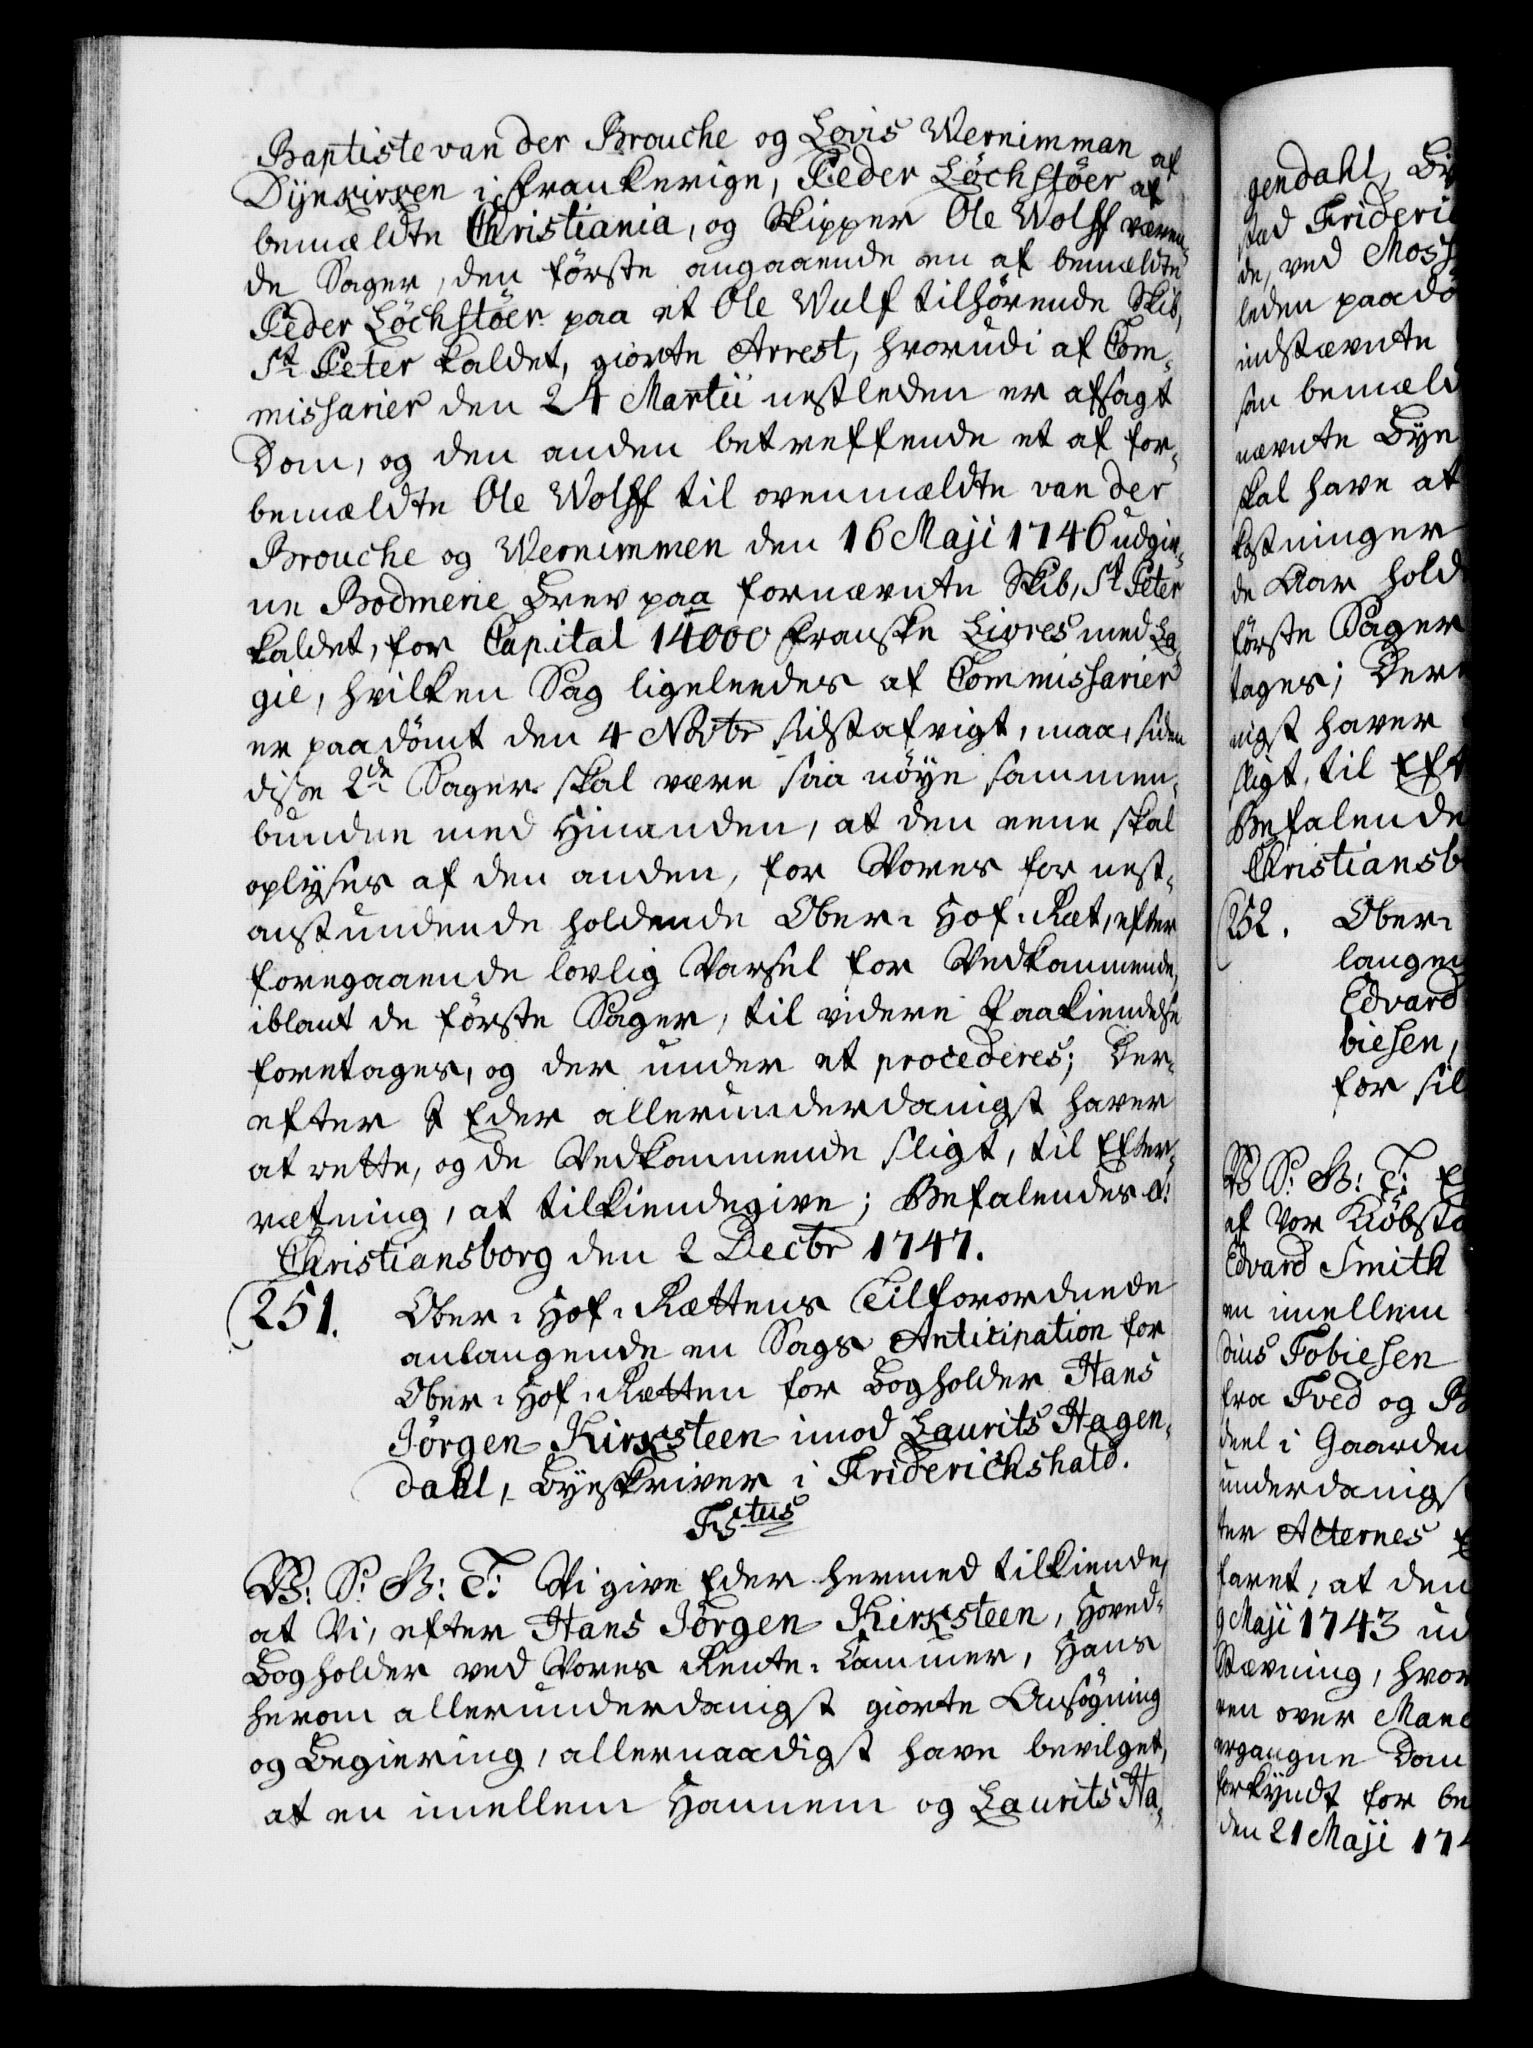 Baptiste van der Brouche og Lovis Wernimman af
Dynkirken i Frankerige, Peder Löchstöer af
bemældte Christiania, og Skipper Ole Wolff væren-
de Sager, den förste angaaende en af bemældte
Peder Löchstöer paa et Ole Wulf tilhörende Skib,
St Peter kaldet, giorte Arrest, hvorudi af Com-
missarier den 24 Martii nestleden er afsagt
Dom, og den anden betreffende et af for-
bemældte Ole Wolff til ovenmældte van der
Brouche og Wernimmen den 16 Maji 1746 udgiv-
ne Bodmerie Brev paa fornævnte Skib, St Peter
kaldet, for Capital 14000 Franske Livres med La-
gie, hvilken Sag ligeleedes af Commissarier
er paadömt den 4 Novbr sidstafvigt, maa, siden
disse 2de Sager skal være saa nöye sammen-
bundne med Hinanden, at den eene skal
oplyses af den anden, for Vores for nest-
anstundende holdende Ober-Hof-Ræt, efter
foregaaende lovlig Varsel for Vedkommende,
iblant de förste Sager, til videre Paakiendelse
foretages, og der under et procederes; Der-
efter I Eder allerunderdanigst haver
at rette, og de Vedkommende sligt, til Efter-
rætning, at tilkiendegive; Befalendes a:
Christiansborg den 2 Decbr 1747.
251. Ober-Hof-Rættens Tilforordnede
anlangende en Sags Anticipation for
Ober-Hof-Rætten for Bogholder Hans
Jörgen Kirksteen imod Laurits Hagen-
dahl, Byeskriver i Friderichshald.
Fstus
V: S: G: T: Vi give Eder hermed tilkiende,
at Vi, efter Hans Jörgen Kirksteen, Hoved-
Bogholder ved Vores Rente-Cammer, Hans
herom allerunderdanigst giorte Ansögning
og Begiering, allernaadigst have bevilget,
at en imellem Hannem og Laurits Ha-
gendahl,
stad
de, ved
leden
indstævnte
san
nævnte Bye
skal have at
kostninger
de Aar
förste Sager
tages;
nigst haver
sligt, til
Befalende
252. Ober-
Edvard
biesen,
for
V S: G: T:
af Vor
Edvard Smith
en imellem
Tobiesen
fra Tved og
deel i Gaarden
underdanigst
ter Acternes
faret, at den
9 Maji 1743
Stævning,
ren over
ergangne Dom
forkyndt for
den 21 Maji